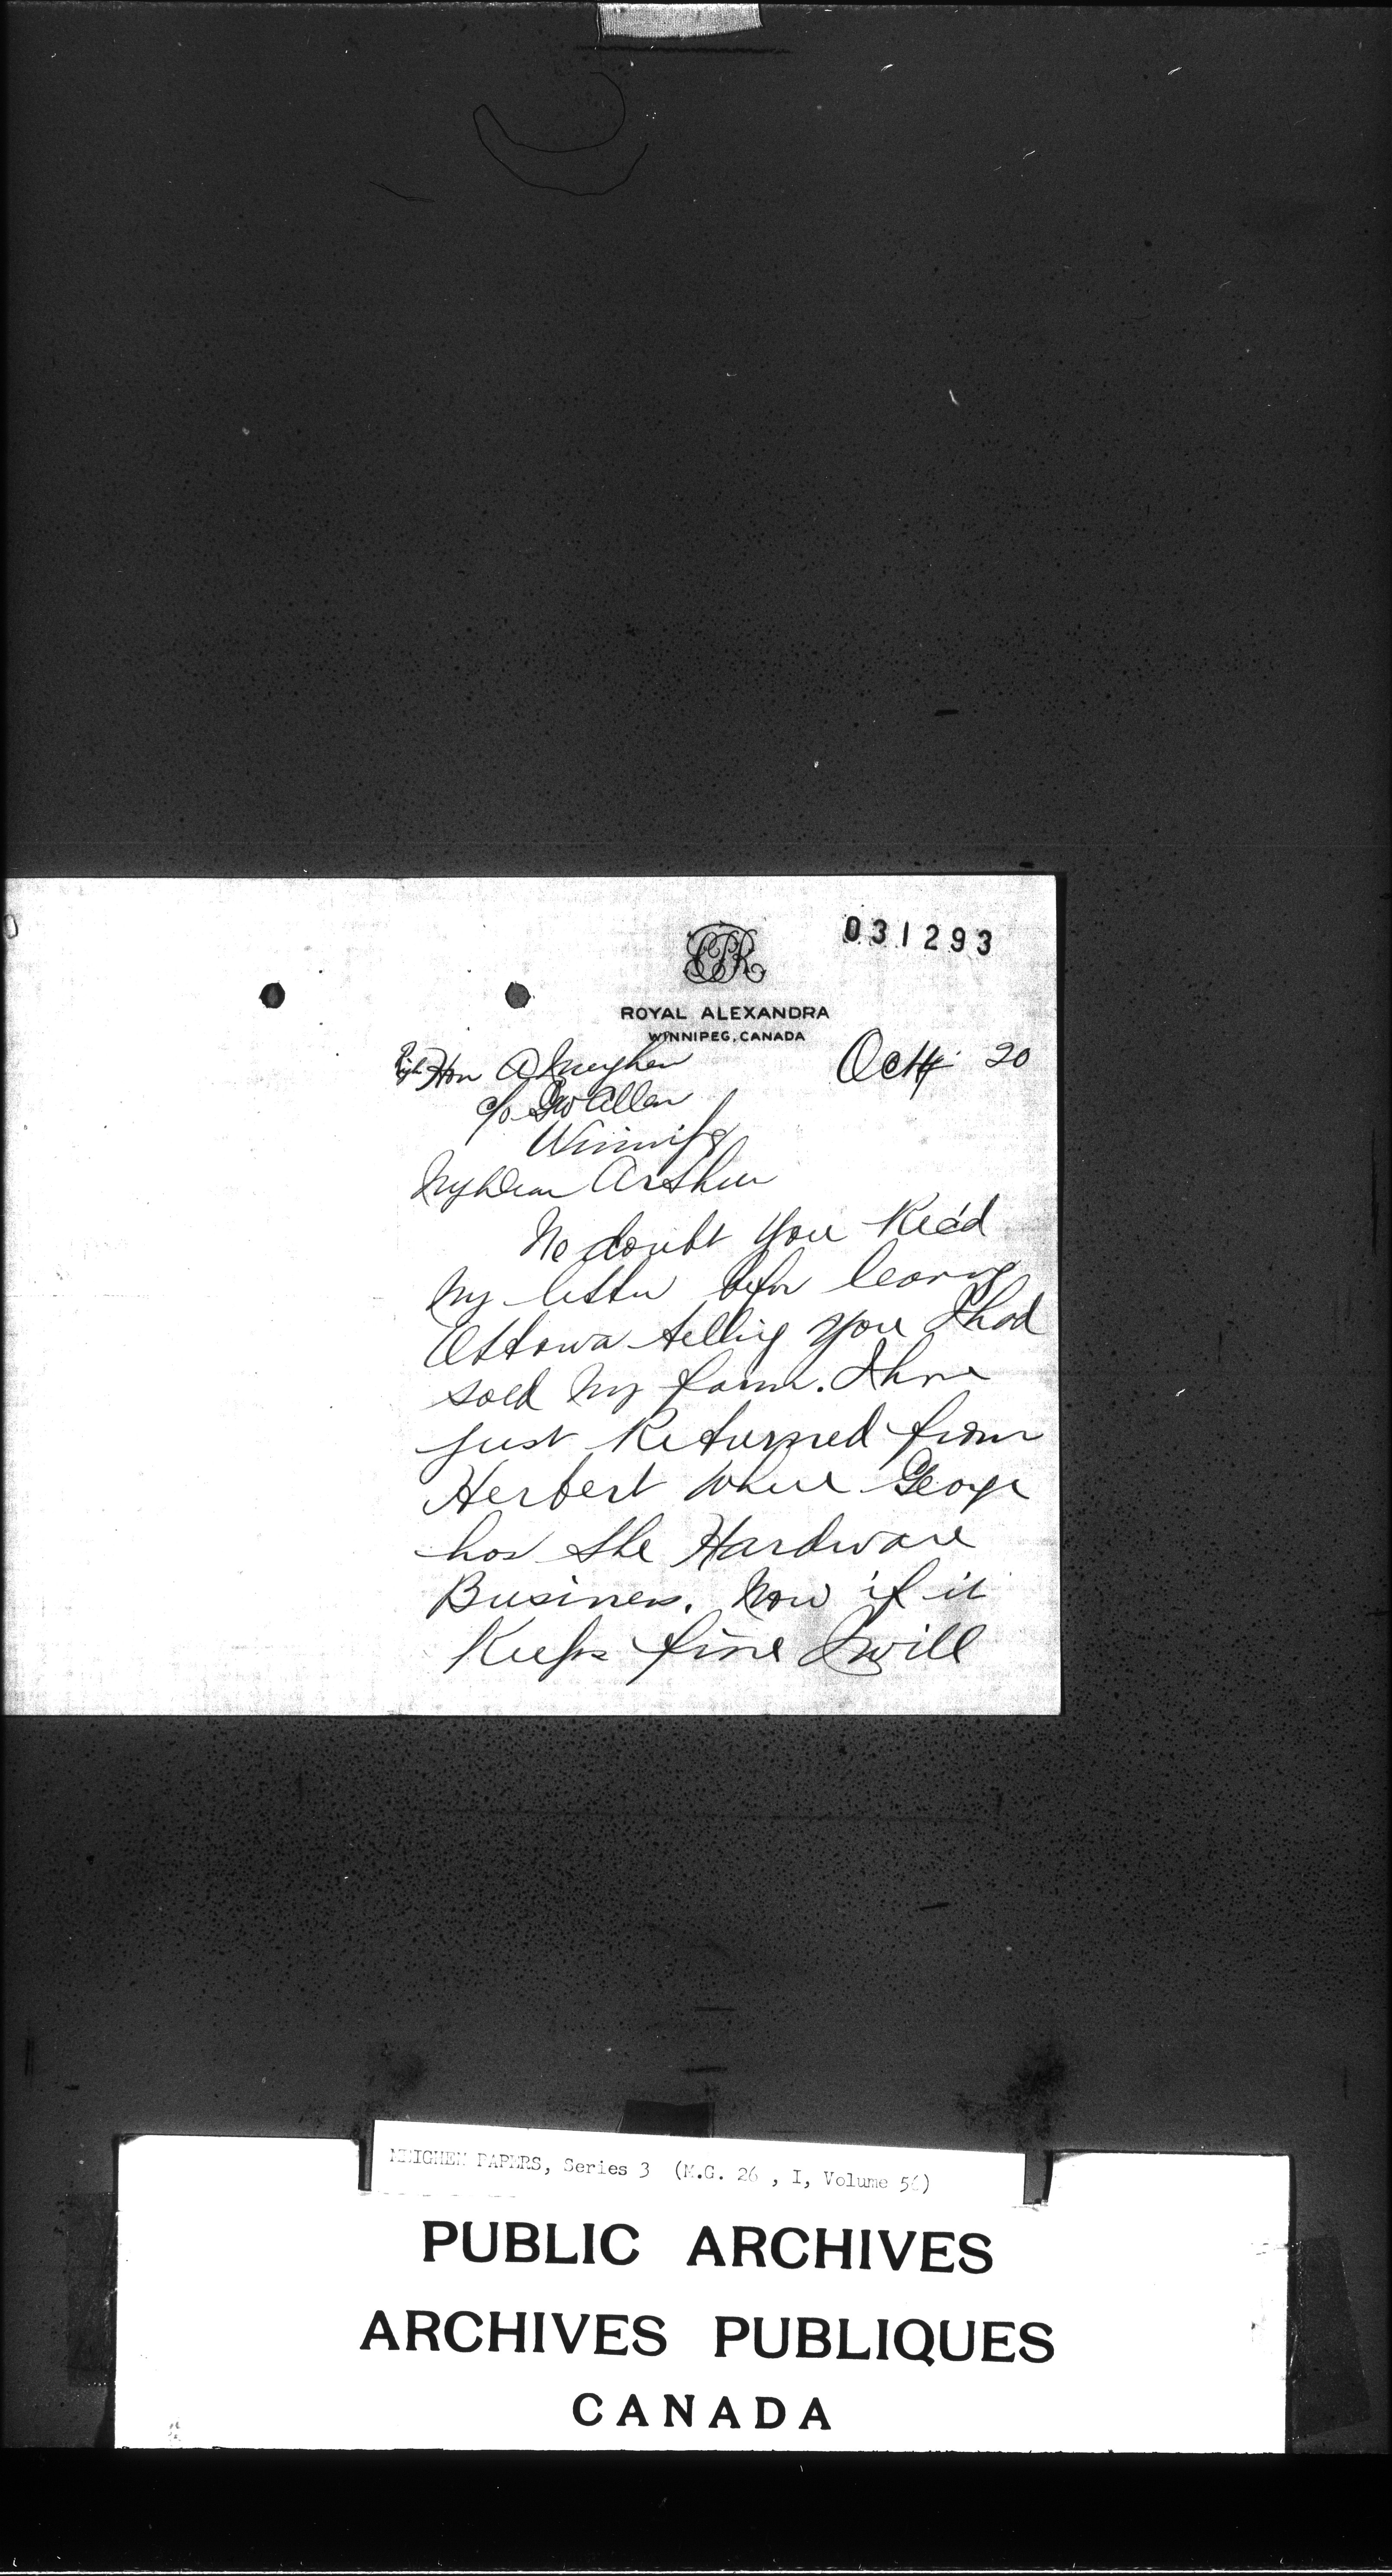 031293
CPR
ROYAL ALEXANDRA
WINNIPEG, CANADA
Oct 20
Right Hon A Meighen
c/o GW Allan
Winnipeg
My Dear Arthur
No doubt you Rec'd
My letter befor leaving
Ottawa telling you I had
sold my farm. I have
just Returned from
Herbert where George
has the Hardware
Business. Now if it
Keeps fine I will
MEIGHEN PAPERS, Series 3 (M.G. 26 , I, Volume 56)
PUBLIC ARCHIVES
ARCHIVES PUBLIQUES
CANADA